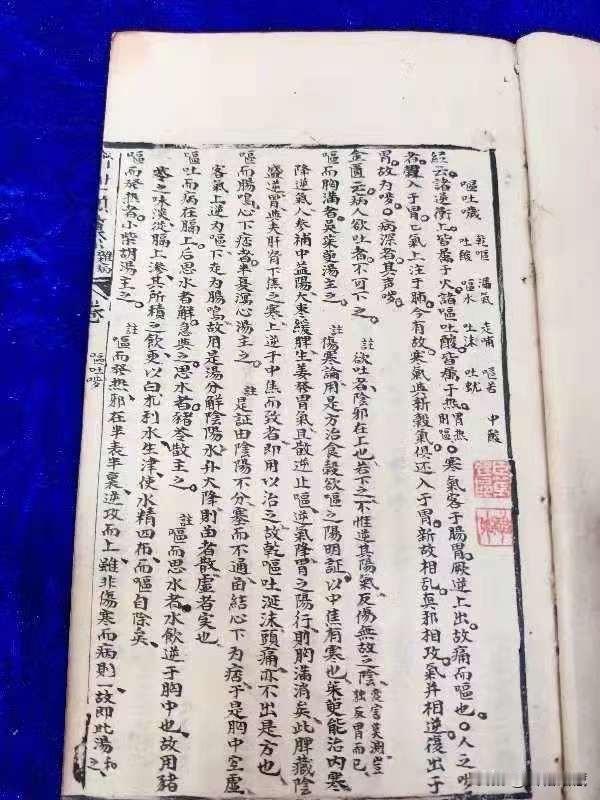 嘔吐噦 乾嘔 滿氣 走哺 嘔苦
吐酸 嘔水 吐沫 吐蚘 中酸
經云。諸逆衝上。皆属于火。諸嘔吐酸。皆属于熱。胃熱則嘔。寒氣客于腸胃。厥逆上出。故痛而嘔也。人之噦
者。穀入于胃。胃氣上注于肺。今有故寒氣與新穀氣。俱还入于胃。新故相亂。真邪相攻。氣并相逆。復出于
胃。故为噦。病深者。其声噦
金匱云。病人欲吐者。不可下之。 註 欲吐者。陰邪在上也。若下之。不惟逆其陽氣。反傷無故之陰。變害莫測。豈獨反胃而已
嘔而胸滿者。吳茱萸湯主之。 註 傷寒論用是方治食穀欲嘔之陽明証。以中焦有寒也。茱萸能治內寒
降逆氣。人參補中益陽。大枣緩脾。生姜發胃氣。且散逆止嘔。逆氣降。胃之陽行。則胸滿消矣。此脾臟陰
盛逆胃。與夫肝腎下焦之寒上逆于中焦而致者。即用以治之。故乾嘔吐涎沫頭痛。亦不出是方也
嘔而腸鳴。心下痞者。半夏瀉心湯主之。 註 是証由陰陽不分。塞而不通。畱結心下为痞。于是胸中空虛
客氣上逆为嘔。下走为腸鳴。故用是湯分觧陰陽。水升火降。則畱者散。虛者实也
嘔吐而病在膈上。后思水者觧。急與之。思水者。豬苓散主之。 註 嘔而思水者。水飲逆于胸中也。故用豬
苓之味淡。從膈上滲其所積之飲。更以白朮利水生津。使水精四布。而嘔自除矣
嘔而發热者。小柴胡湯主之。 註 嘔而發热。邪在半表半裏。逆攻而上。雖非傷寒而病則一。故即此湯和之
雜病 卷 嘔吐噦